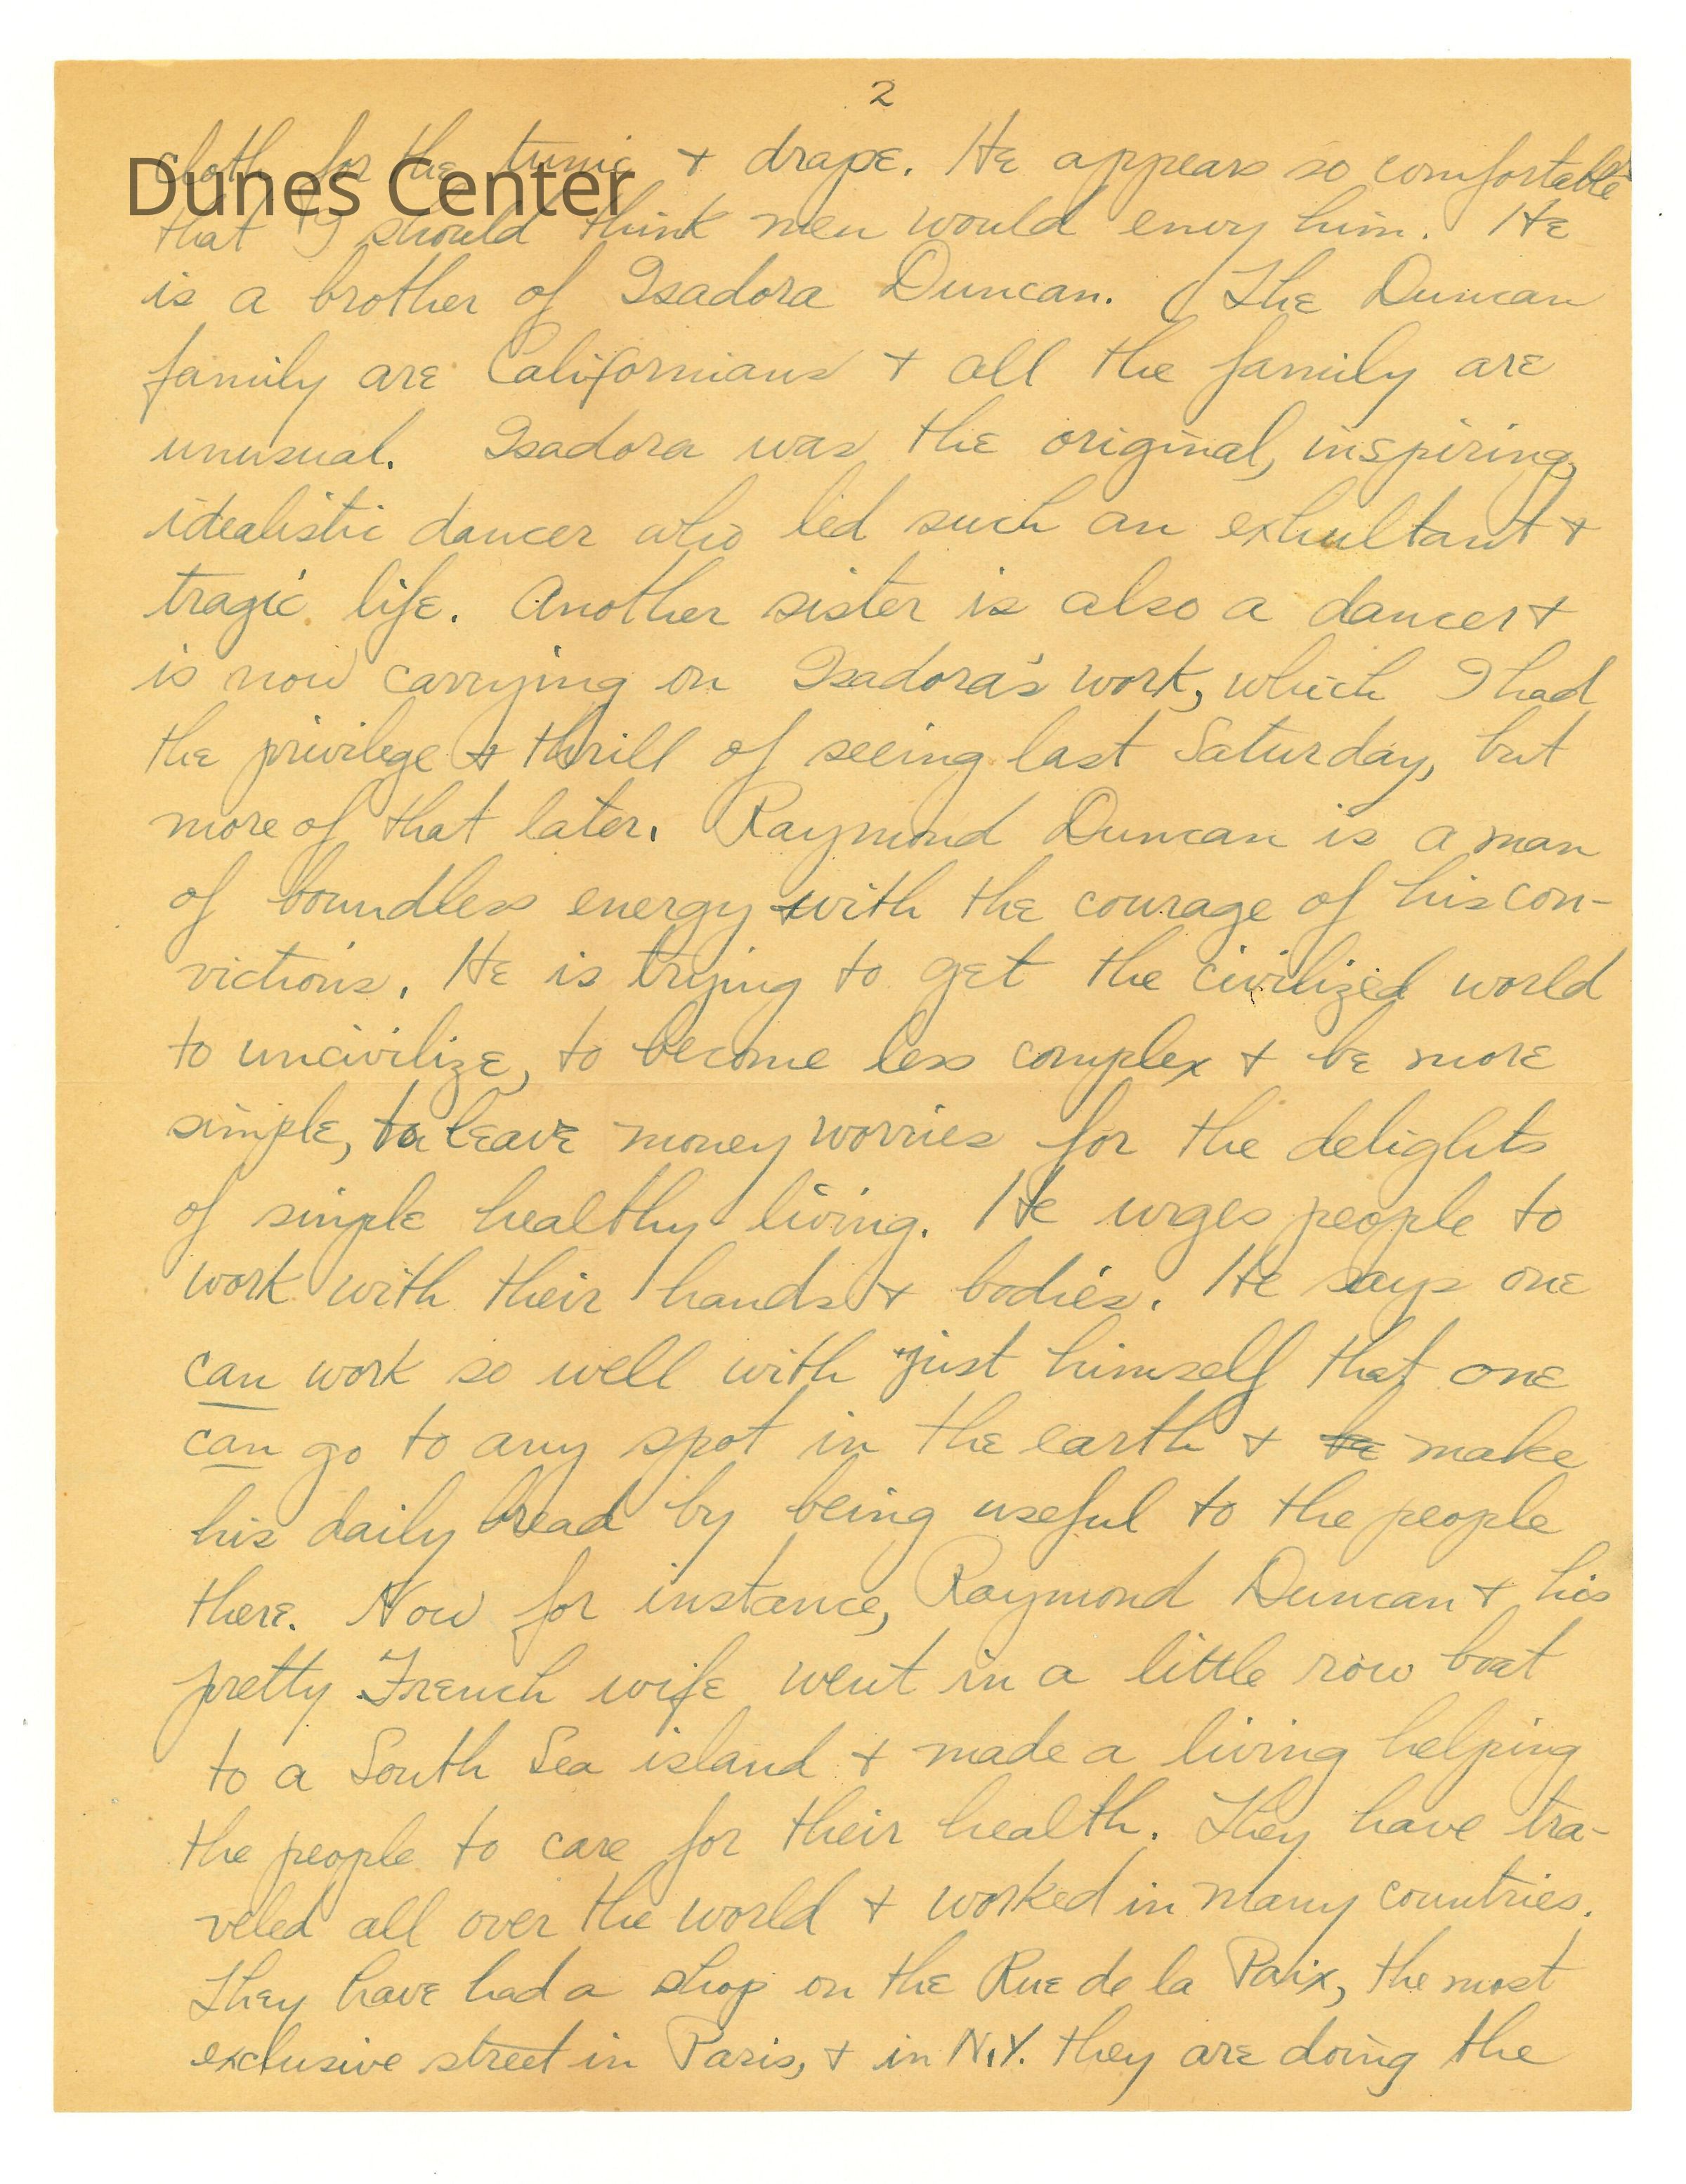 2
Dunes Center
cloth for the tunic + drape. He appears so comfortable
that I should think men would envy him. He
is a brother of Isadora Duncan. (The Duncan
family are Californians + all the family are
unusual. Isadora was the original, inspiring,
idealistic dancer who led such an exhultant +
tragic life. Another sister is also a dancer +
is now carrying on Isadora's work, which I had
the privilege + thrill of seeing last Saturday, but
more of that later. Raymond Duncan is a man
of boundless energy with the courage of his con-
victions. He is trying to get the civilized world
to uncivilize, to become less complex + be more
simple, to leave money worries for the delights
of simple healthy living. He urges people to
work with their hands + bodies. He says one
can work so well with just himself that one
can go to any spot in the earth + be make
his daily bread by being useful to the people
there. Now for instance, Raymond Duncan + his
pretty French wife went in a little row boat
to a South Sea island + made a living helping
the people to care for their health. They have tra-
veled all over the world + worked in many countries.
They have had a shop on the Rue de la Paix, the most
exclusive street in Paris, + in N.Y. they are doing the